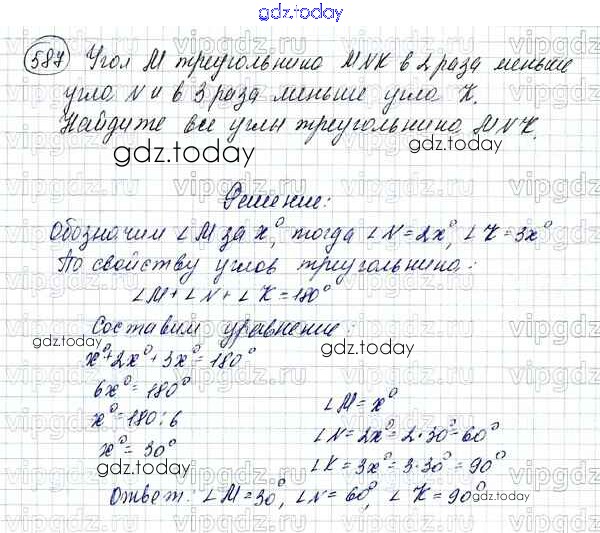 gdz.today
587 Угол M треугольника MNK в 2 раза меньше
угла N и в 3 раза меньше угла K.
Найдите все углы треугольника MNK.
gdz.today
gdz.today
Решение:
Обозначим ∠M за x°, тогда ∠N=2x°, ∠K=3x°
По свойству углов треугольника:
∠M+∠N+∠K=180°
Составим уравнение:
gdz.today
gdz.today
x°+2x°+3x°=180°
6x°=180°
x°=180:6
x°=30°
∠M=x°
∠N=2x°=2·30°=60°
∠K=3x°=3·30°=90°
gdz.today
gdz.today
Ответ: ∠M=30°, ∠N=60°, ∠K=90°